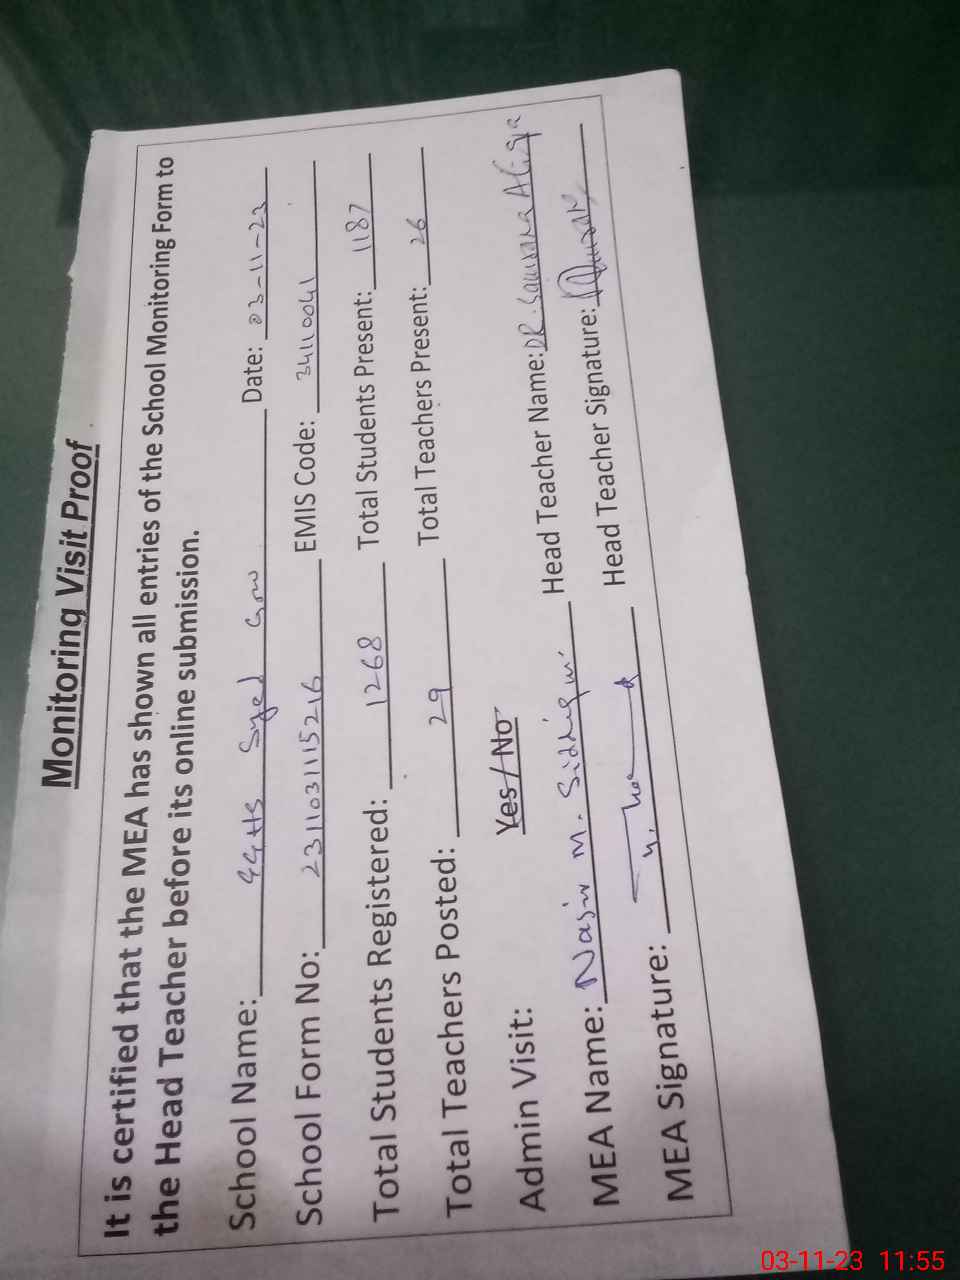 Monitoring Visit Proof
It is certified that the MEA has shown all entries of the School Monitoring Form to
the Head Teacher before its online submission.
School Name: GGHS Syed Gow Date: 03-11-23
School Form No: 2311031115216 EMIS Code: 34110041
Total Students Registered: 1268 Total Students Present: 1187
Total Teachers Posted: 29 Total Teachers Present: 26
Admin Visit: Yes/No
MEA Name: Nasir M. Siddiqui Head Teacher Name: DR.
MEA Signature: Head Teacher Signature:
03-11-23 11:55